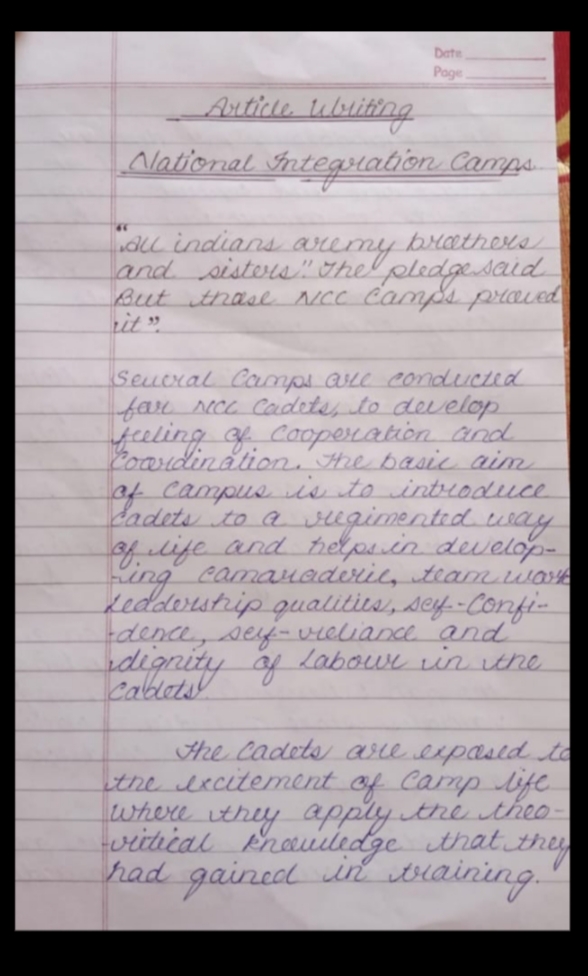 Date
Page
Article Writing
National Integration Camps
"All indians are my brothers
and sisters". The pledge said
But those NCC Camps proved
it".
Several Camps are conducted
for NCC Cadets, to develop
feeling of Cooperation and
Coordination. The basic aim
of Campus is to introduce
Cadets to a regimented way
of life and helps in develop-
-ing camaraderie, team work
Leadership qualities, self-Confi-
-dence, self-reliance and
dignity of Labour in the
Cadets
The Cadets are exposed to
the excitement of Camp life
where they apply the theo-
-ritical knowledge that they
had gained in training.